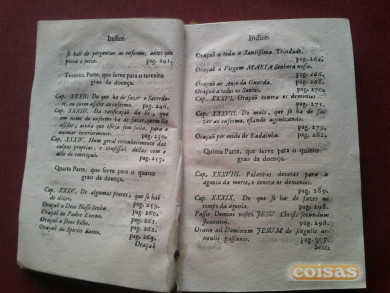 Indice.
se hað de perguntar ao enfermo, antes que
perca o juizo. pag. 241.
Terceira Parte, que serve para o terceiro
grao da doença.
Cap. XXXII. Do que ha de fazer o Sacerdo-
te, ou quem assiste ao enfermo. pag. 246.
Cap. XXXIII. Da ratificaçaõ da
em nome do enfermo se ha de fazer,
ainda que esteja sem juizo, para a
pag. 250.
Cap. XXXIV. Hum geral reconhecimento das
culpas proprias, e confissaõ dellas com o
de contriçaõ. pag. 257.
Quarta Parte, que serve para o quarto
grao da doença.
Cap. XXXV. De algumas preces, que se haõ
de dizer. pag. 259.
Oraçaõ a Deos Nosso Senhor. pag. 260.
Oraçaõ ao Padre Eterno. pag. 261.
Oraçaõ a Deos Filho. pag. 262.
Oraçaõ ao Spirito Santo. pag. 263.
Oraçaõ
Indice.
Oraçaõ a toda a Santissima Trindade.
pag. 264.
Oraçaõ a Virgem MARIA Senhora nossa.
pag. 266.
Oraçaõ ao Anjo da Guarda. pag. 268.
Oraçaõ a todos os Santos. pag. 271.
Cap. XXXVI. Oraçaõ contra os demonios.
pag. 271.
Cap. XXXVII. Do mais, que se ha de fa-
zer ao enfermo, estando agonizando.
pag. 275.
Oraçaõ por modo de Ladainha. pag. 282.
Quinta Parte, que serve para o quinto
grao da doença.
Cap. XXXVIII. Palavras devotas para a
agonia da morte, e contra os demonios.
pag. 289.
Cap. XXXIX. Do que se ha de fazer no
tempo da agonia. pag. 298.
Passio Domini nostri JESU Christi secundum
Joannem. pag. 298.
Oratio ad Dominum JESUM de singulis ar-
ticulis passionis. pag. 307.
coisas